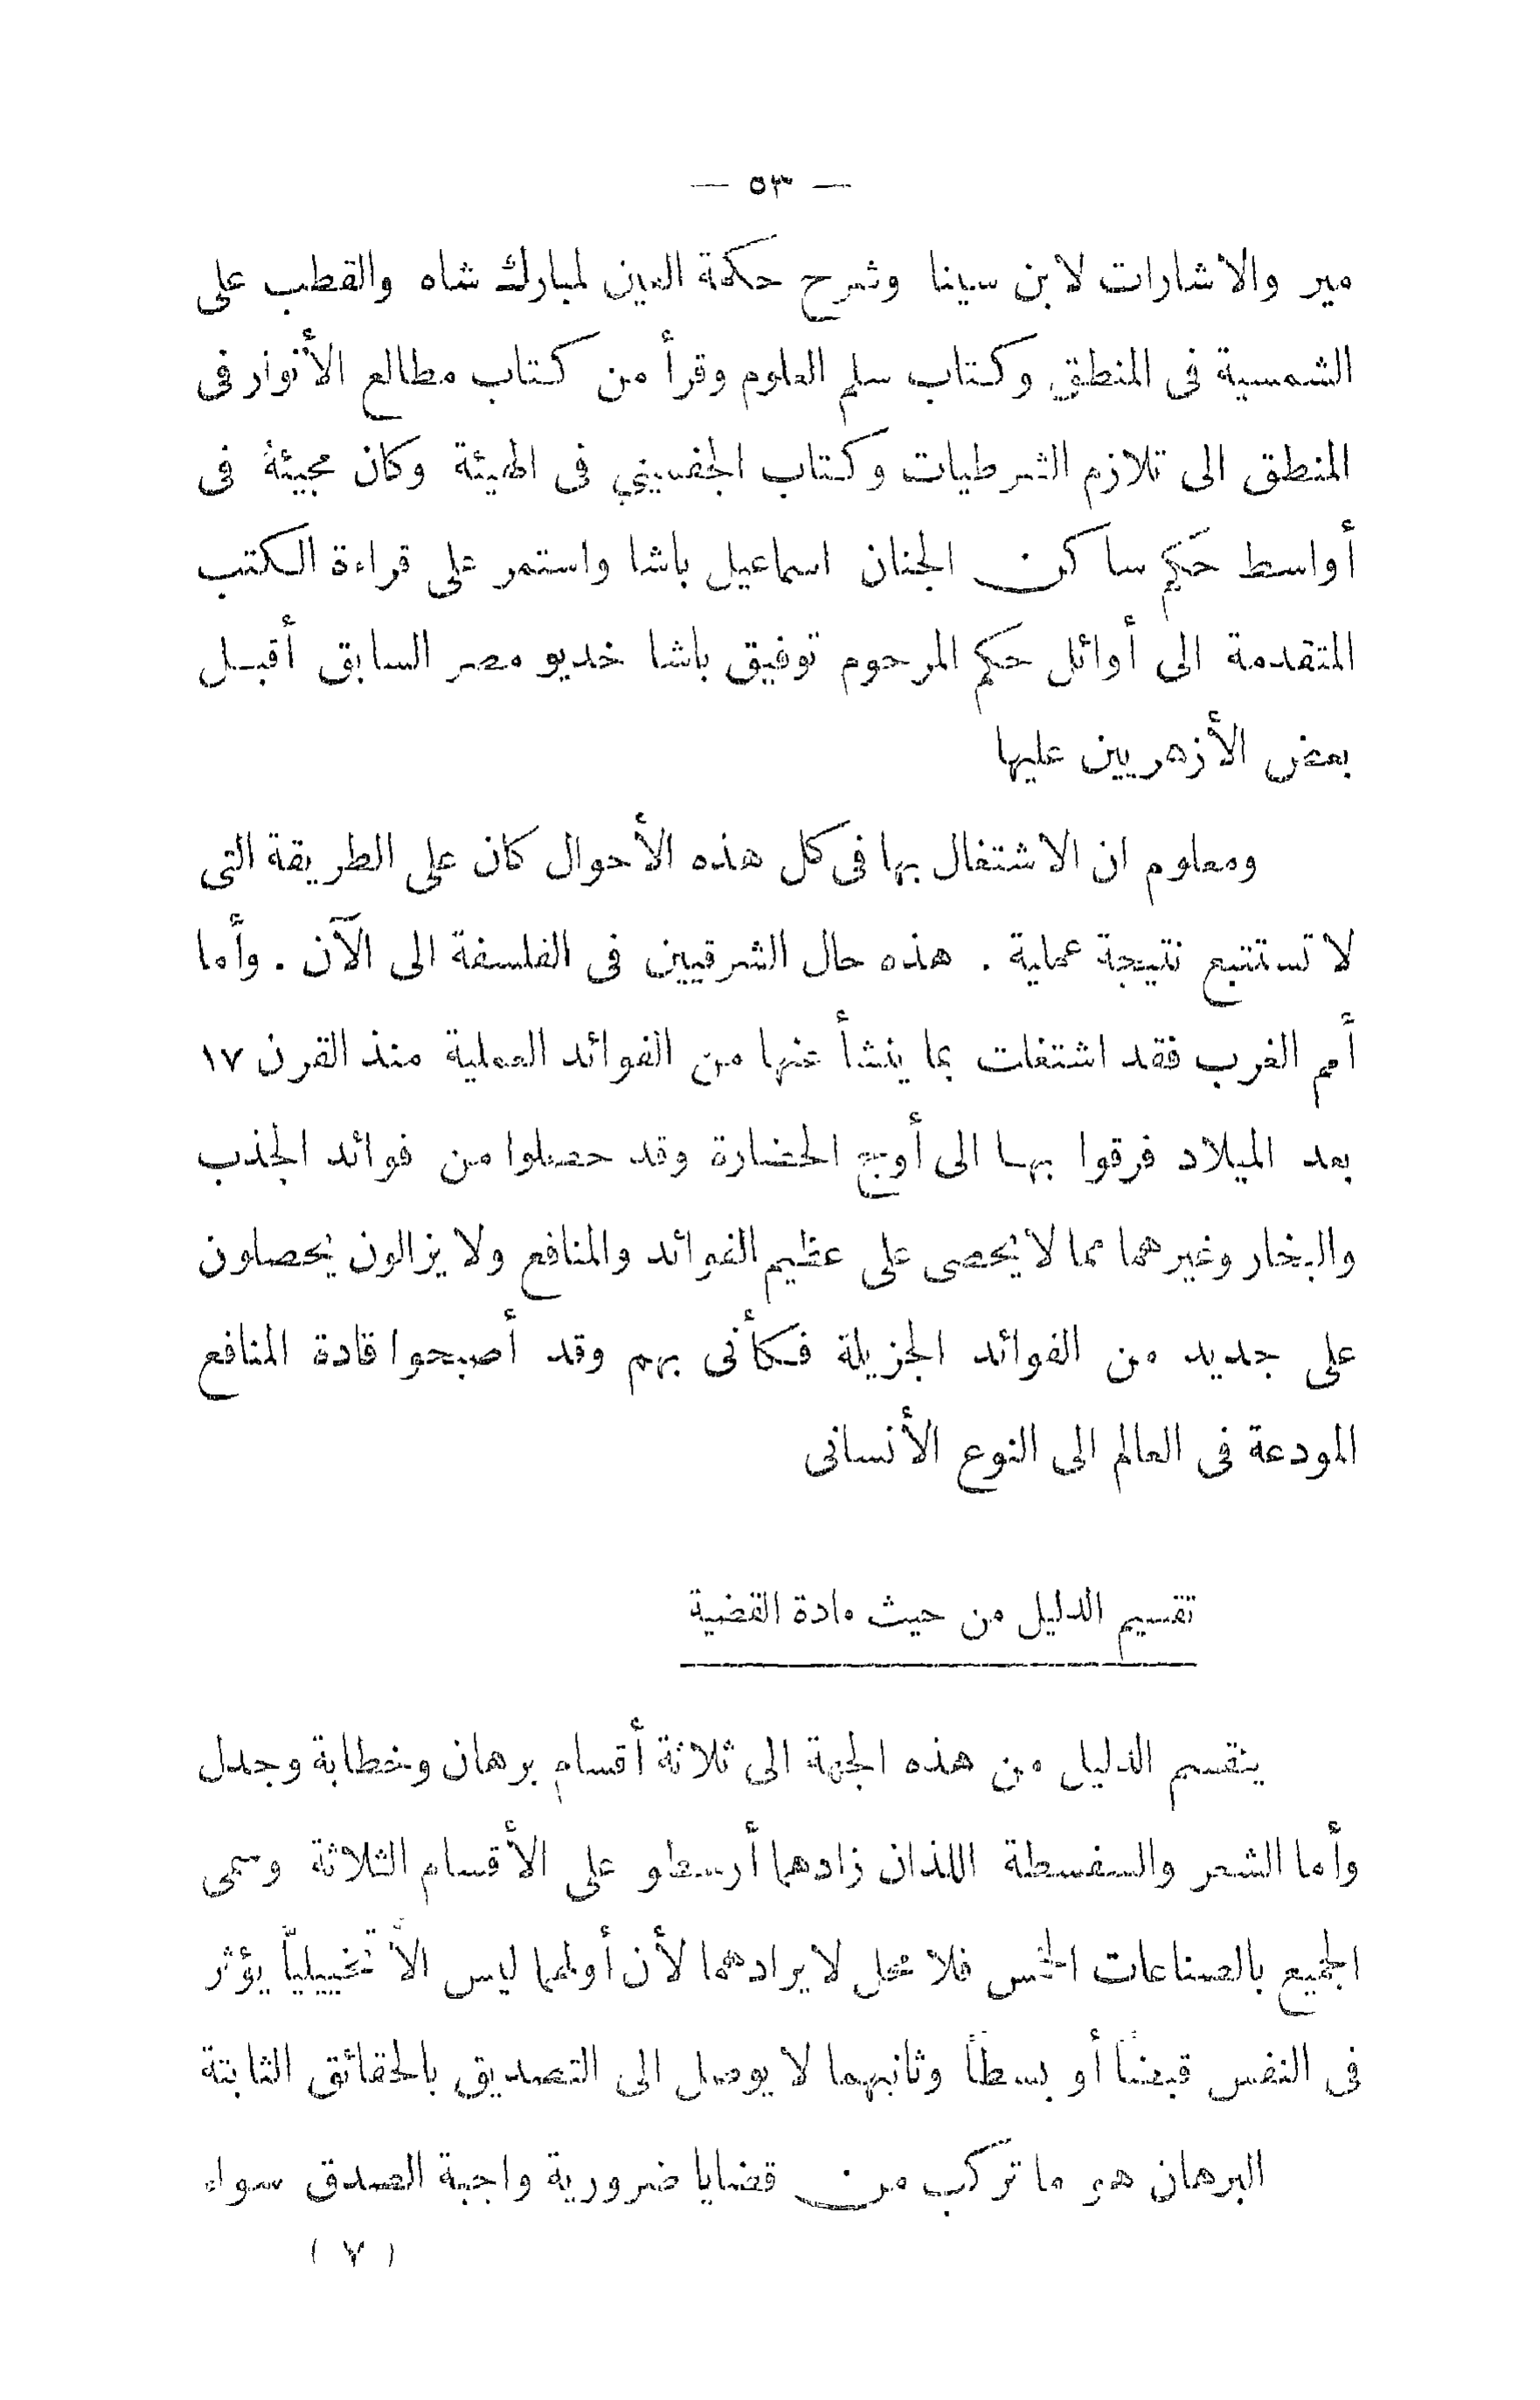 — ٥٣ —
مير والاشارات لابن سينا وشرح حكمة العين لمبارك شاه والقطب على
الشمسية فى المنطق وكتاب سلم العلوم وقرأ من كتاب مطالع الأنوار فى
المنطق الى تلازم الشرطيات وكتاب الجغمينى فى الهيئة وكان مجيئه فى
أواسط حكم ساكن الجنان اسماعيل باشا واستمر على قراءة الكتب
المتقدمة الى أوائل حكم المرحوم توفيق باشا خديو مصر السابق أقبل
بعض الأزهريين عليها
ومعلوم ان الاشتغال بها فى كل هذه الأحوال كان على الطريقة التى
لا تستتبع نتيجة عملية . هذه حال الشرقيين فى الفلسفة الى الآن . وأما
أمم الغرب فقد اشتغلت بما ينشأ عنها من الفوائد العملية منذ القرن ١٧
بعد الميلاد فرقوا بها الى أوج الحضارة وقد حصلوا من فوائد الجذب
والبخار وغيرهما مما لا يحصى على عظيم الفوائد والمنافع ولا يزالون يحصلون
على جديد من الفوائد الجزيلة فكأنى بهم وقد أصبحوا قادة المنافع
المودعة فى العالم الى النوع الأنسانى
تقسيم الدليل من حيث مادة القضية
ينقسم الدليل من هذه الجهة الى ثلاثة أقسام برهان وخطابة وجدل
وأما الشعر والسفسطة اللذان زادهما أرسطو على الأقسام الثلاثة وسمى
الجميع بالصناعات الخمس فلا محل لايرادهما لأن أولهما ليس الاّ تخييليًّا يؤثر
فى النفس قبضاً أو بسطاً وثانيهما لا يوصل الى التصديق بالحقائق الثابتة
البرهان هو ما تركب من قضايا ضرورية واجبة الصدق سواء
( ٧ )